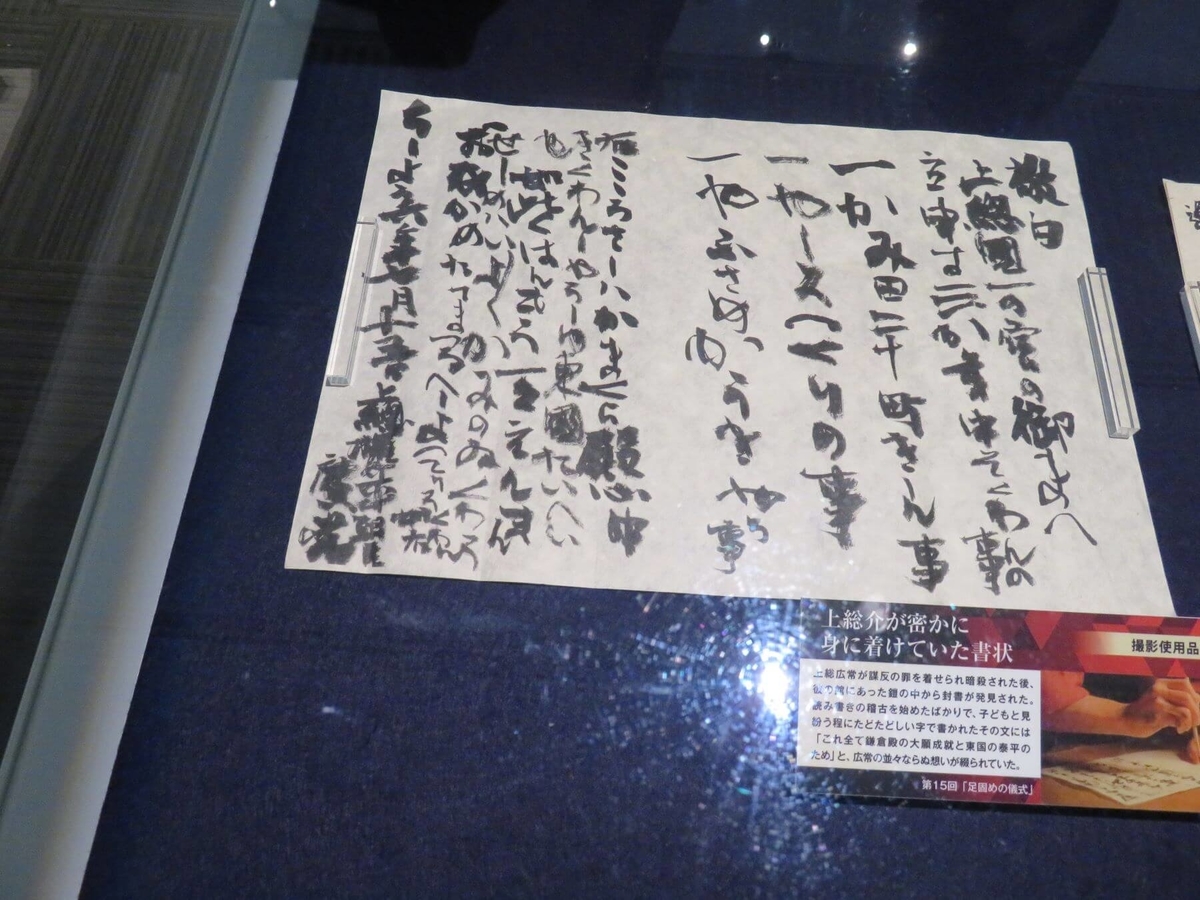 敬白
上總國一の宮の御まへ
立申は三か年中そくわんの事
一かみ田二十町きしん事
一やしろつくりの事
一やふさめ 事
右こころさしハかまくら殿心中
きくわんしやうしゆ東國たいへい
如此はんもう一々えんまん
せしめハいよ〱かみのゐくわう
かめたてまつるへしよつて
ちしよう六年七月 上總權介平朝臣
廣常
上総介が密かに
身に着けていた書状
撮影使用品
上総広常が謀反の罪を着せられ暗殺された後、
彼の館にあった鎧の中から封書が発見された。
読み書きの稽古を始めたばかりで、子どもと見
紛う程にたどたどしい字で書かれたその文には
「これ全て鎌倉殿の大願成就と東国の泰平の
ため」と、広常の並々ならぬ想いが綴られていた。
第15回「足固めの儀式」